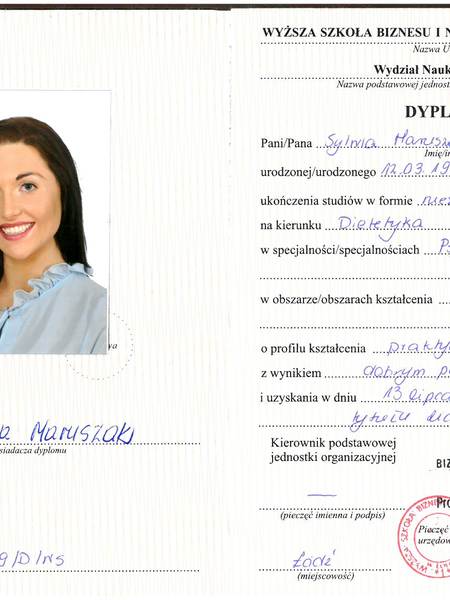 a Maruszak
siadacza dyplomu
WYŻSZA SZKOŁA BIZNESU I N
Nazwa U
Wydział Nauk
Nazwa podstawowej jednost
DYPL
Pani/Pana Sylwia Marusz
Imię/i
urodzonej/urodzonego 12.03.19
ukończenia studiów w formie niez
na kierunku Dietetyka
w specjalności/specjalnościach Ps
w obszarze/obszarach kształcenia
o profilu kształcenia prakty
z wynikiem dobrym p
i uzyskania w dniu 13 lipca
tytułu
Kierownik podstawowej
jednostki organizacyjnej
BIZ
Pro
(pieczęć imienna i podpis)
Pieczęć
urzędow
Łódź
(miejscowość)